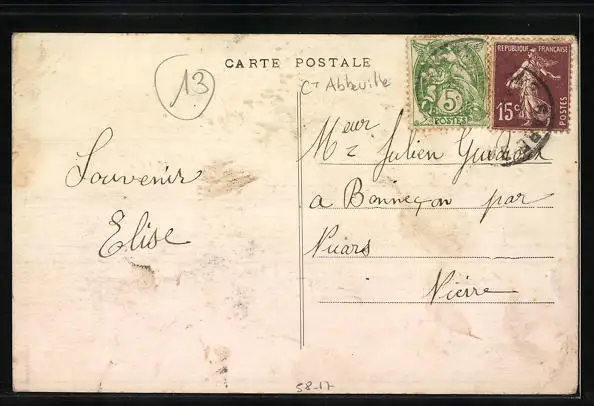 13
CARTE POSTALE
Cn Abbeville
5c
POSTES
REPUBLIQUE FRANÇAISE
15c
POSTES
Souvenir
Elise
Meur Julien
a Bonneçon par
Nuars
Nièvre
58-17